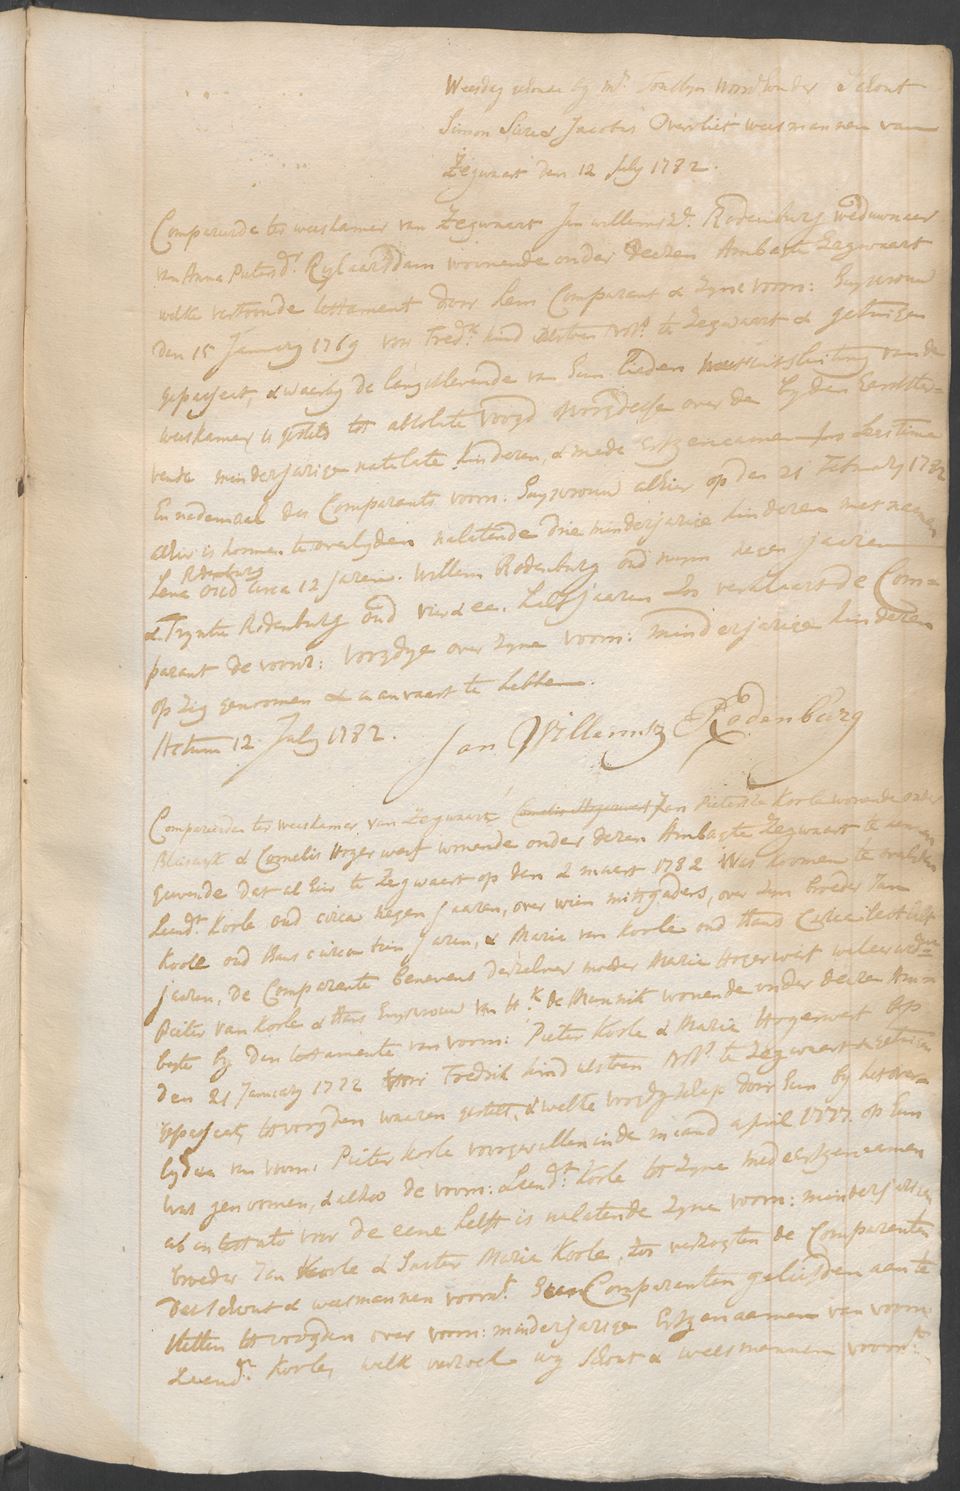 Weesdag gehouden by Mr. Jonathan Noordhonder Schout
Simon Sier & Jacobus Overvliet weesmannen van
Zegwaart den 12 July 1782.
Compareerde ter weeskamer van Zegwaart Jan Willemsz. Rodenburg weduwnaar
van Anna Pietersd. Rylaarsdam woonende onder deezen Ambagte Zegwaart
welke vertoonde testament door hem Comparant & zyne voorn: Huysvrouw
den 15 January 1769 voor Fredk. kind Nots. te Zegwaart & getuigen
gepasseert, & waarby de langstlevende van hun lieden met uitsluiting van de
weeskamer is gesteld tot absolute voogd of voogdesse over de by den Eerststerv=
vende minderjarige natelate kinderen, & mede Erfgenaamen
En nademaal des Comparants voorn: Huysvrouw alhier op den 21 February 1782
alhier is komen te overlyden nalatende drie minderjarige kinderen met naamen
Rodenburg
Lena oud circa 12 jaren. Willem Rodenburg oud ruym negen jaaren
& Tryntie Rodenburg oud vier & een half jaaren zo verklaart de Com=
parant de voorn: voogdye over zyne voorn: minderjarige kinderen
op zig genoomen & aanvaart te hebben.
Actum 12 July 1782. Jan Willemsz Rodenburg
Compareerden ter weeskamer van Zegwaart Jan Pietersz Koole woonende onder
Bleiswyk & Cornelis Hogerwerf wonende onder dezen Ambagte Zegwaart te kennen
gevende dat alhier te Zegwaart op den 2 maart 1782 was koomen te overlyden
Leend. Koole oud circa negen jaaren, over wien mitsgaders, over zyn broeder Jan
Koole oud thans circa tien jaren, & Maria van Koole oud thans circa
jaaren, de Comparanten benevens derzelver moeder Maria Hogerwerf
Pieter van Koole & thans Huysvrouw van Hk. de Mannik wonende onder dezen Am=
bagte by den testamente van voorn: Pieter Koole & Maria Hogerwerf op
den 21 January 1772 voor Fredrik kind Notp. te Zegwaart & getuigen
gepasseert, tot voogden waaren gestelt, & welke voogdyschap door hun by het over=
lyden van voorn: Pieter Koole voorgevallen in de maand april 1777 op hun
was genoomen, & alzoo de voorn: Leend. Koole tot zyne mede erfgenaamen
ab intestato voor de eene helft is nalatende zyne voorn: minderjarigen
broeder Jan Koole & Suster Maria Koole, zo verzogten de Comparanten
dat Schout & weesmannen voornt. hen Comparanten geliefden aan te
stellen tot voogden over voorn: minderjarige Erfgenaamen van voorn:
Leend. Koole, welk verzoek wy Schout & weesmannen voornt.